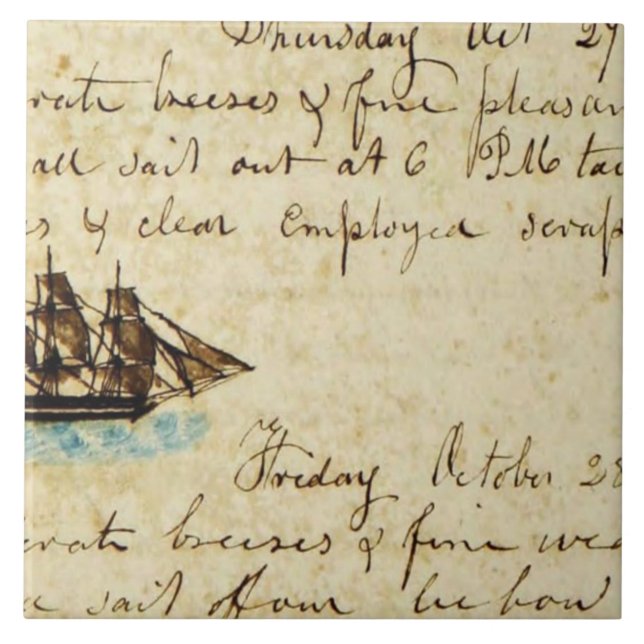 Thursday Oct 27
rate breeses & fine pleasan
all sail out at 6 PM tac
es & clear Employed scrap
Friday October 28
erate breeses & fine wea
sail off our lee bow